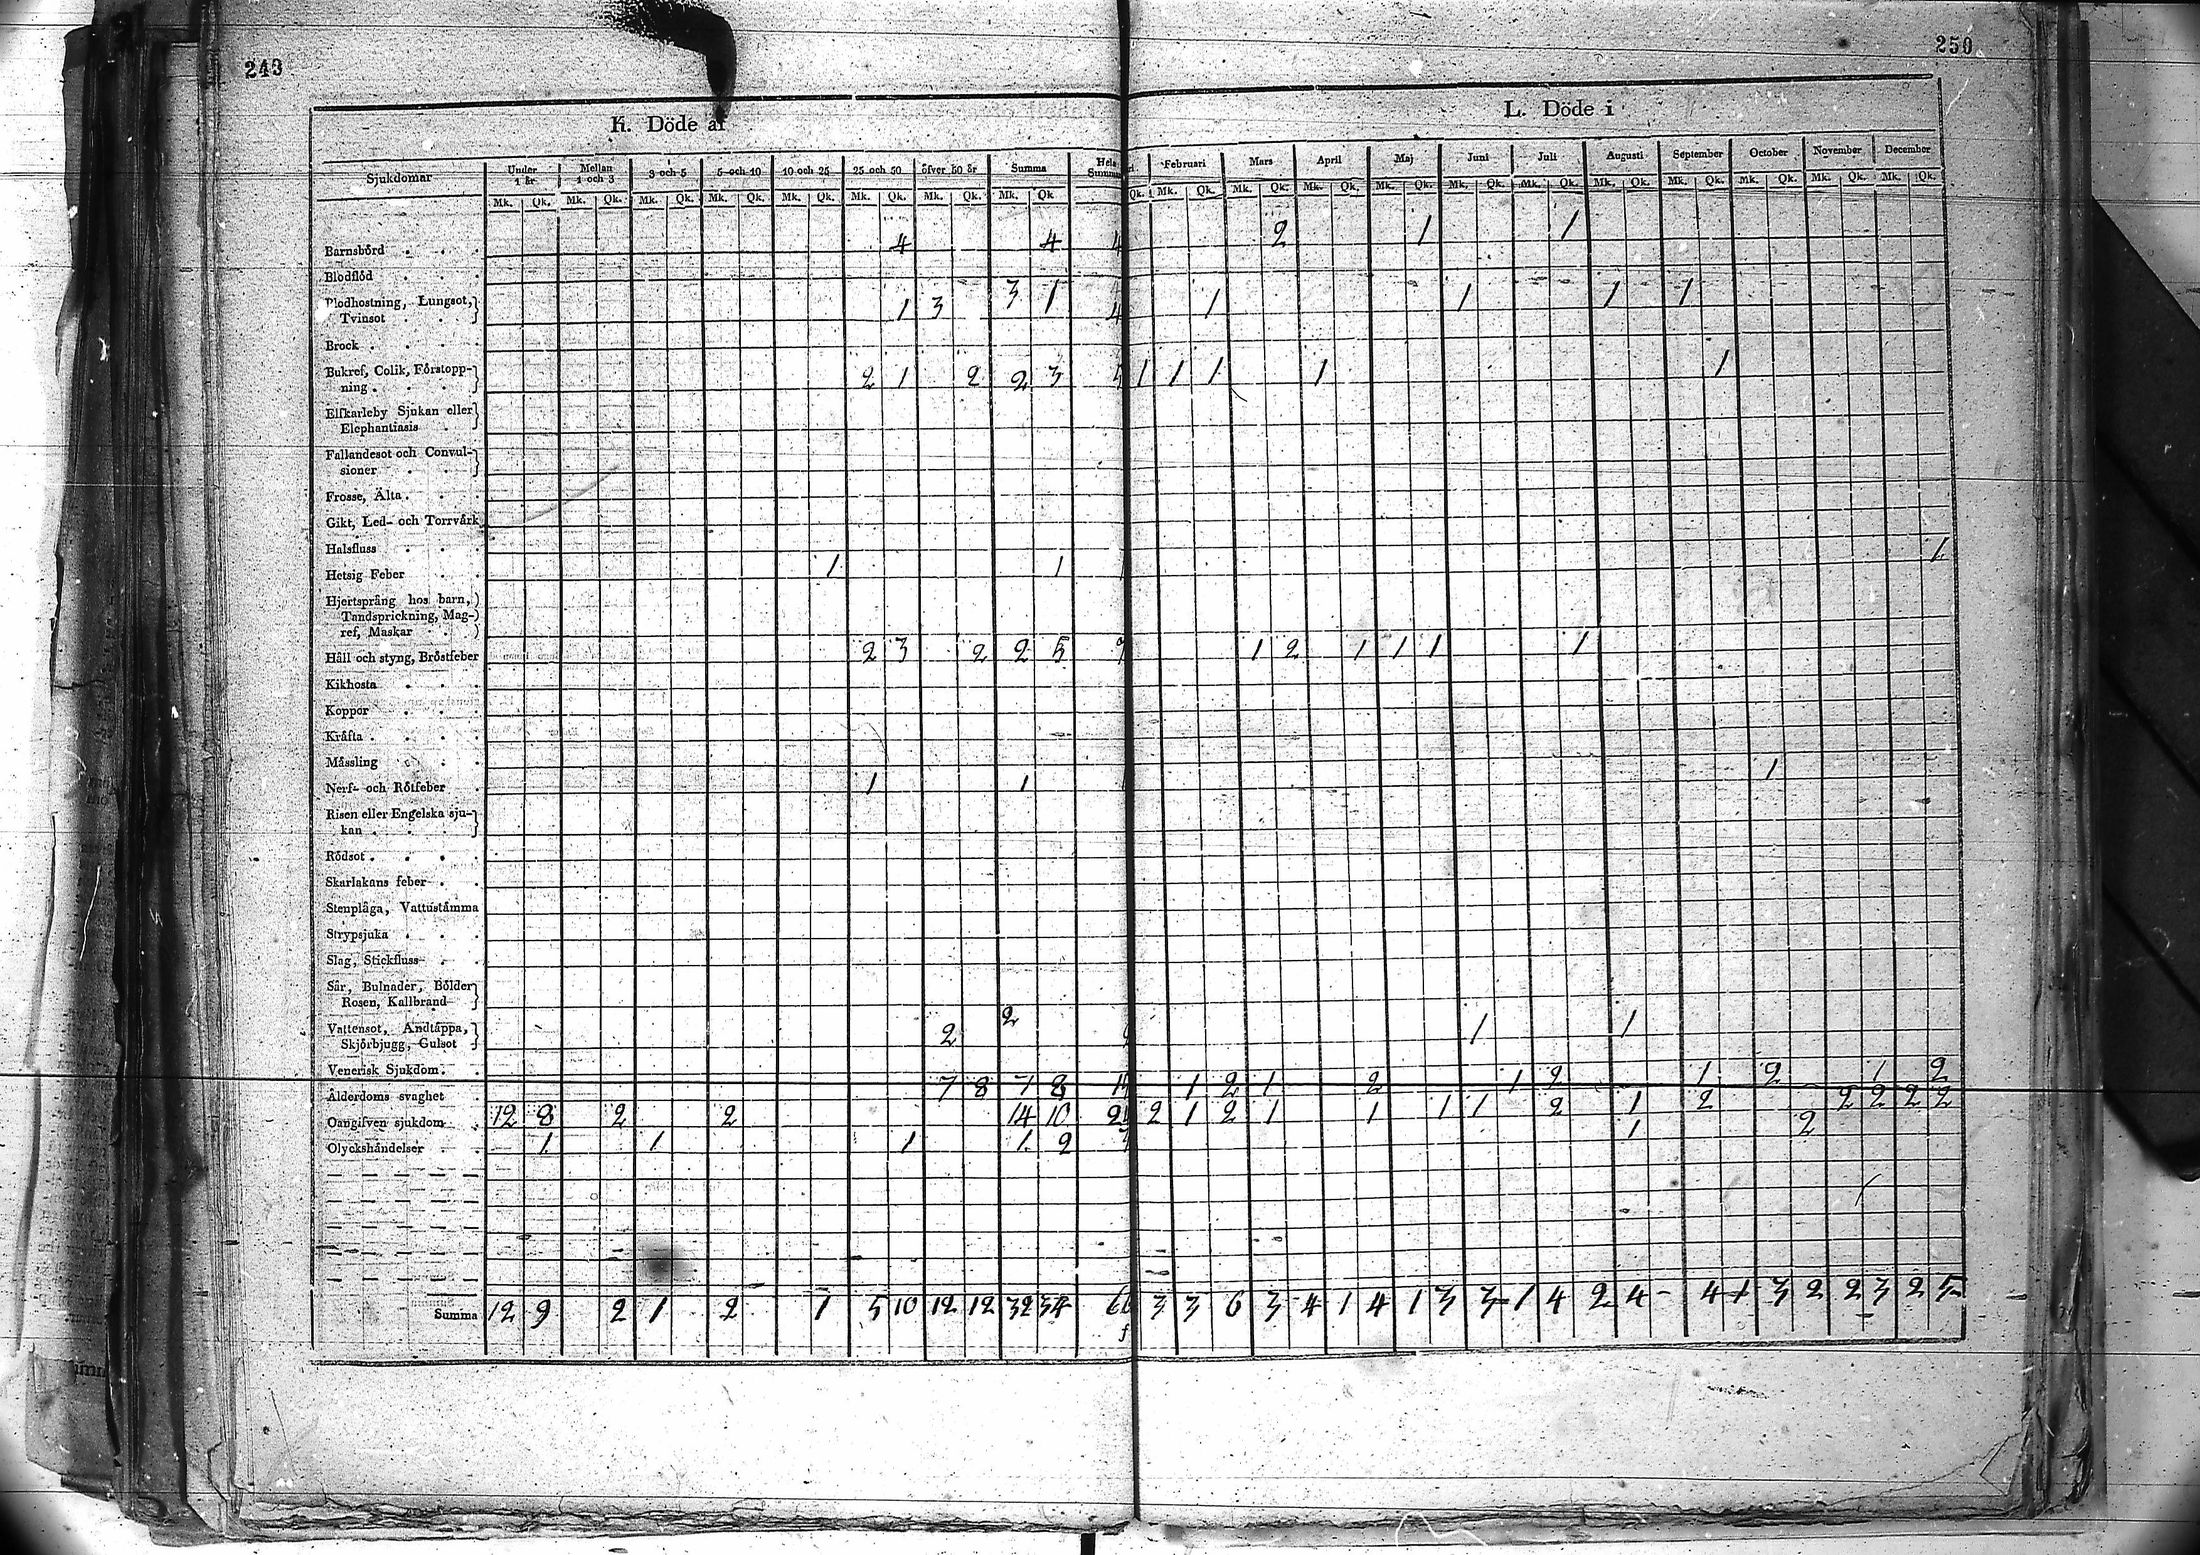 249
250
K. Döde af
L. Döde i
Sjukdomar Under 1 år Mellan 1 och 3 3 och 5 5 och 10 10 och 25 25 och 50 öfver 50 år Summa Hela Summan Februari Mars April Maj Juni Juli Augusti September October November December
Mk. Qk. Mk. Qk. Mk. Qk. Mk. Qk. Mk. Qk. Mk. Qk. Mk. Qk. Mk. Qk. Qk. Mk. Qk. Mk. Qk. Mk. Qk. Mk. Qk. Mk. Qk. Mk. Qk. Mk. Qk. Mk. Qk. Mk. Qk. Mk. Qk. Mk. Qk.
Barnsbörd 4 4 4 2 1 1
Blodflöd
Blodhostning, Lungsot,
Tvinsot 1 3 3 1 4 1 1 1 1
Brock
Bukref, Colik, Förstopp-
ning 2 1 2 2 3 5 1 1 1 1 1
Elfkarleby Sjukan eller
Elephantiasis
Fallandesot och Convul-
sioner
Frosse, Älta
Gikt, Led- och Torrvärk
Halsfluss
Hetsig Feber 1 1 1
Hjertsprång hos barn,
Tandsprickning, Mag-
ref, Maskar
Håll och styng, Bröstfeber 2 3 2 2 5 7 1 2 1 1 1 1
Kikhosta
Koppor
Kräfta
Mässling
Nerf- och Rötfeber 1 1 1
Risen eller Engelska sju-
kan
Rödsot
Skarlakans feber
Stenplåga, Vattustämma
Strypsjuka
Slag, Stickfluss
Sår, Bulnader, Bölder
Rosen, Kallbrand
Vattensot, Andtäppa,
Skjörbjugg, Gulsot 2 2 1 1
Venerisk Sjukdom
Ålderdoms svaghet 7 8 7 8 15 1 2 1 2 1 2 1 2 1 2
Oangifven sjukdom 12 8 2 2 14 10 2 1 2 1 1 1 1 2 1 2 2 2 2 2
Olyckshändelser 1 1 1 1 2 1 2
Summa 12 9 2 1 2 1 5 10 12 12 32 34 66 3 3 6 3 4 1 4 1 3 3 1 4 2 4 - 4 1 3 2 2 3 2 5